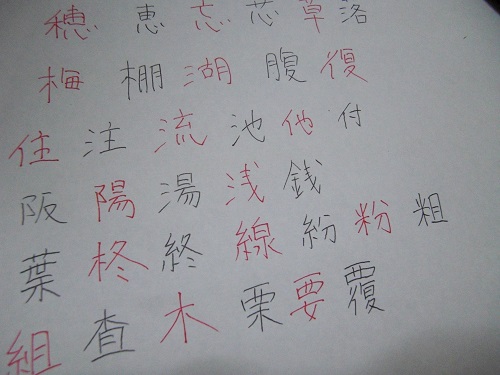 穂恵忘芯草落
梅棚湖腹復
住注流池他付
阪陽湯浅銭
葉柊終線紛粉粗
組査木栗要覆